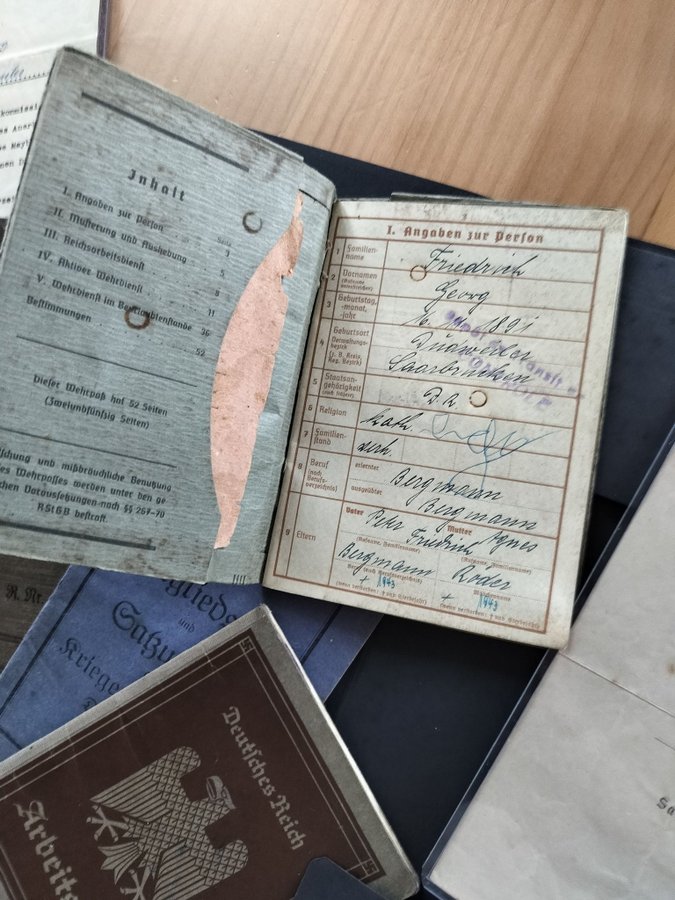 Inhalt
Seite
I. Angaben zur Person 3
II. Musterung und Aushebung 5
III. Reichsarbeitsdienst 8
IV. Aktiver Wehrdienst 11
V. Wehrdienst im Beurlaubtenstande 36
Bestimmungen 52
Dieser Wehrpaß hat 52 Seiten
(Zweiundfünfzig Seiten)
schung und mißbräuchliche Benutzung
es Wehrpasses werden unter den ge
chen Voraussetzungen nach §§ 267-70
RStGB bestraft.
3
I. Angaben zur Person
1 Familienname Friedrich
2 Vornamen Georg
3 Geburtstag, -monat, -jahr 1891
4 Geburtsort Dudweiler
Verwaltungsbezirk (z. B. Kreis, Reg. Bezirk) Saarbrücken
5 Staatsangehörigkeit D.R.
6 Religion kath.
7 Familienstand verh.
8 Beruf (nach Berufsverzeichnis) erlernter Bergmann
ausgeübter Bergmann
9 Eltern
Vater Mutter
Peter Agnes
Friedrich
(Rufname, Familienname) (Rufname, Familienname)
Bergmann Roder
(Beruf (nach Berufsverzeichnis)) (Mädchenname)
+ 1943 + 1943
(wenn verstorben: † und Sterbejahr) (wenn verstorben: † und Sterbejahr)
R. Nr.
glieds
Satzu
und
Kriege
Deutsches Reich
Arbeits